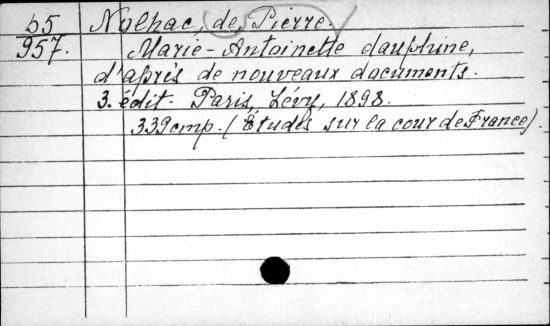 b5
957.
Nolhac, de, Pierre.
Marie-Antoinette dauphine,
d'après de nouveaux documents.
3. édit. Paris, Lévy, 1898.
339 cmp. (Études sur la cour de France).